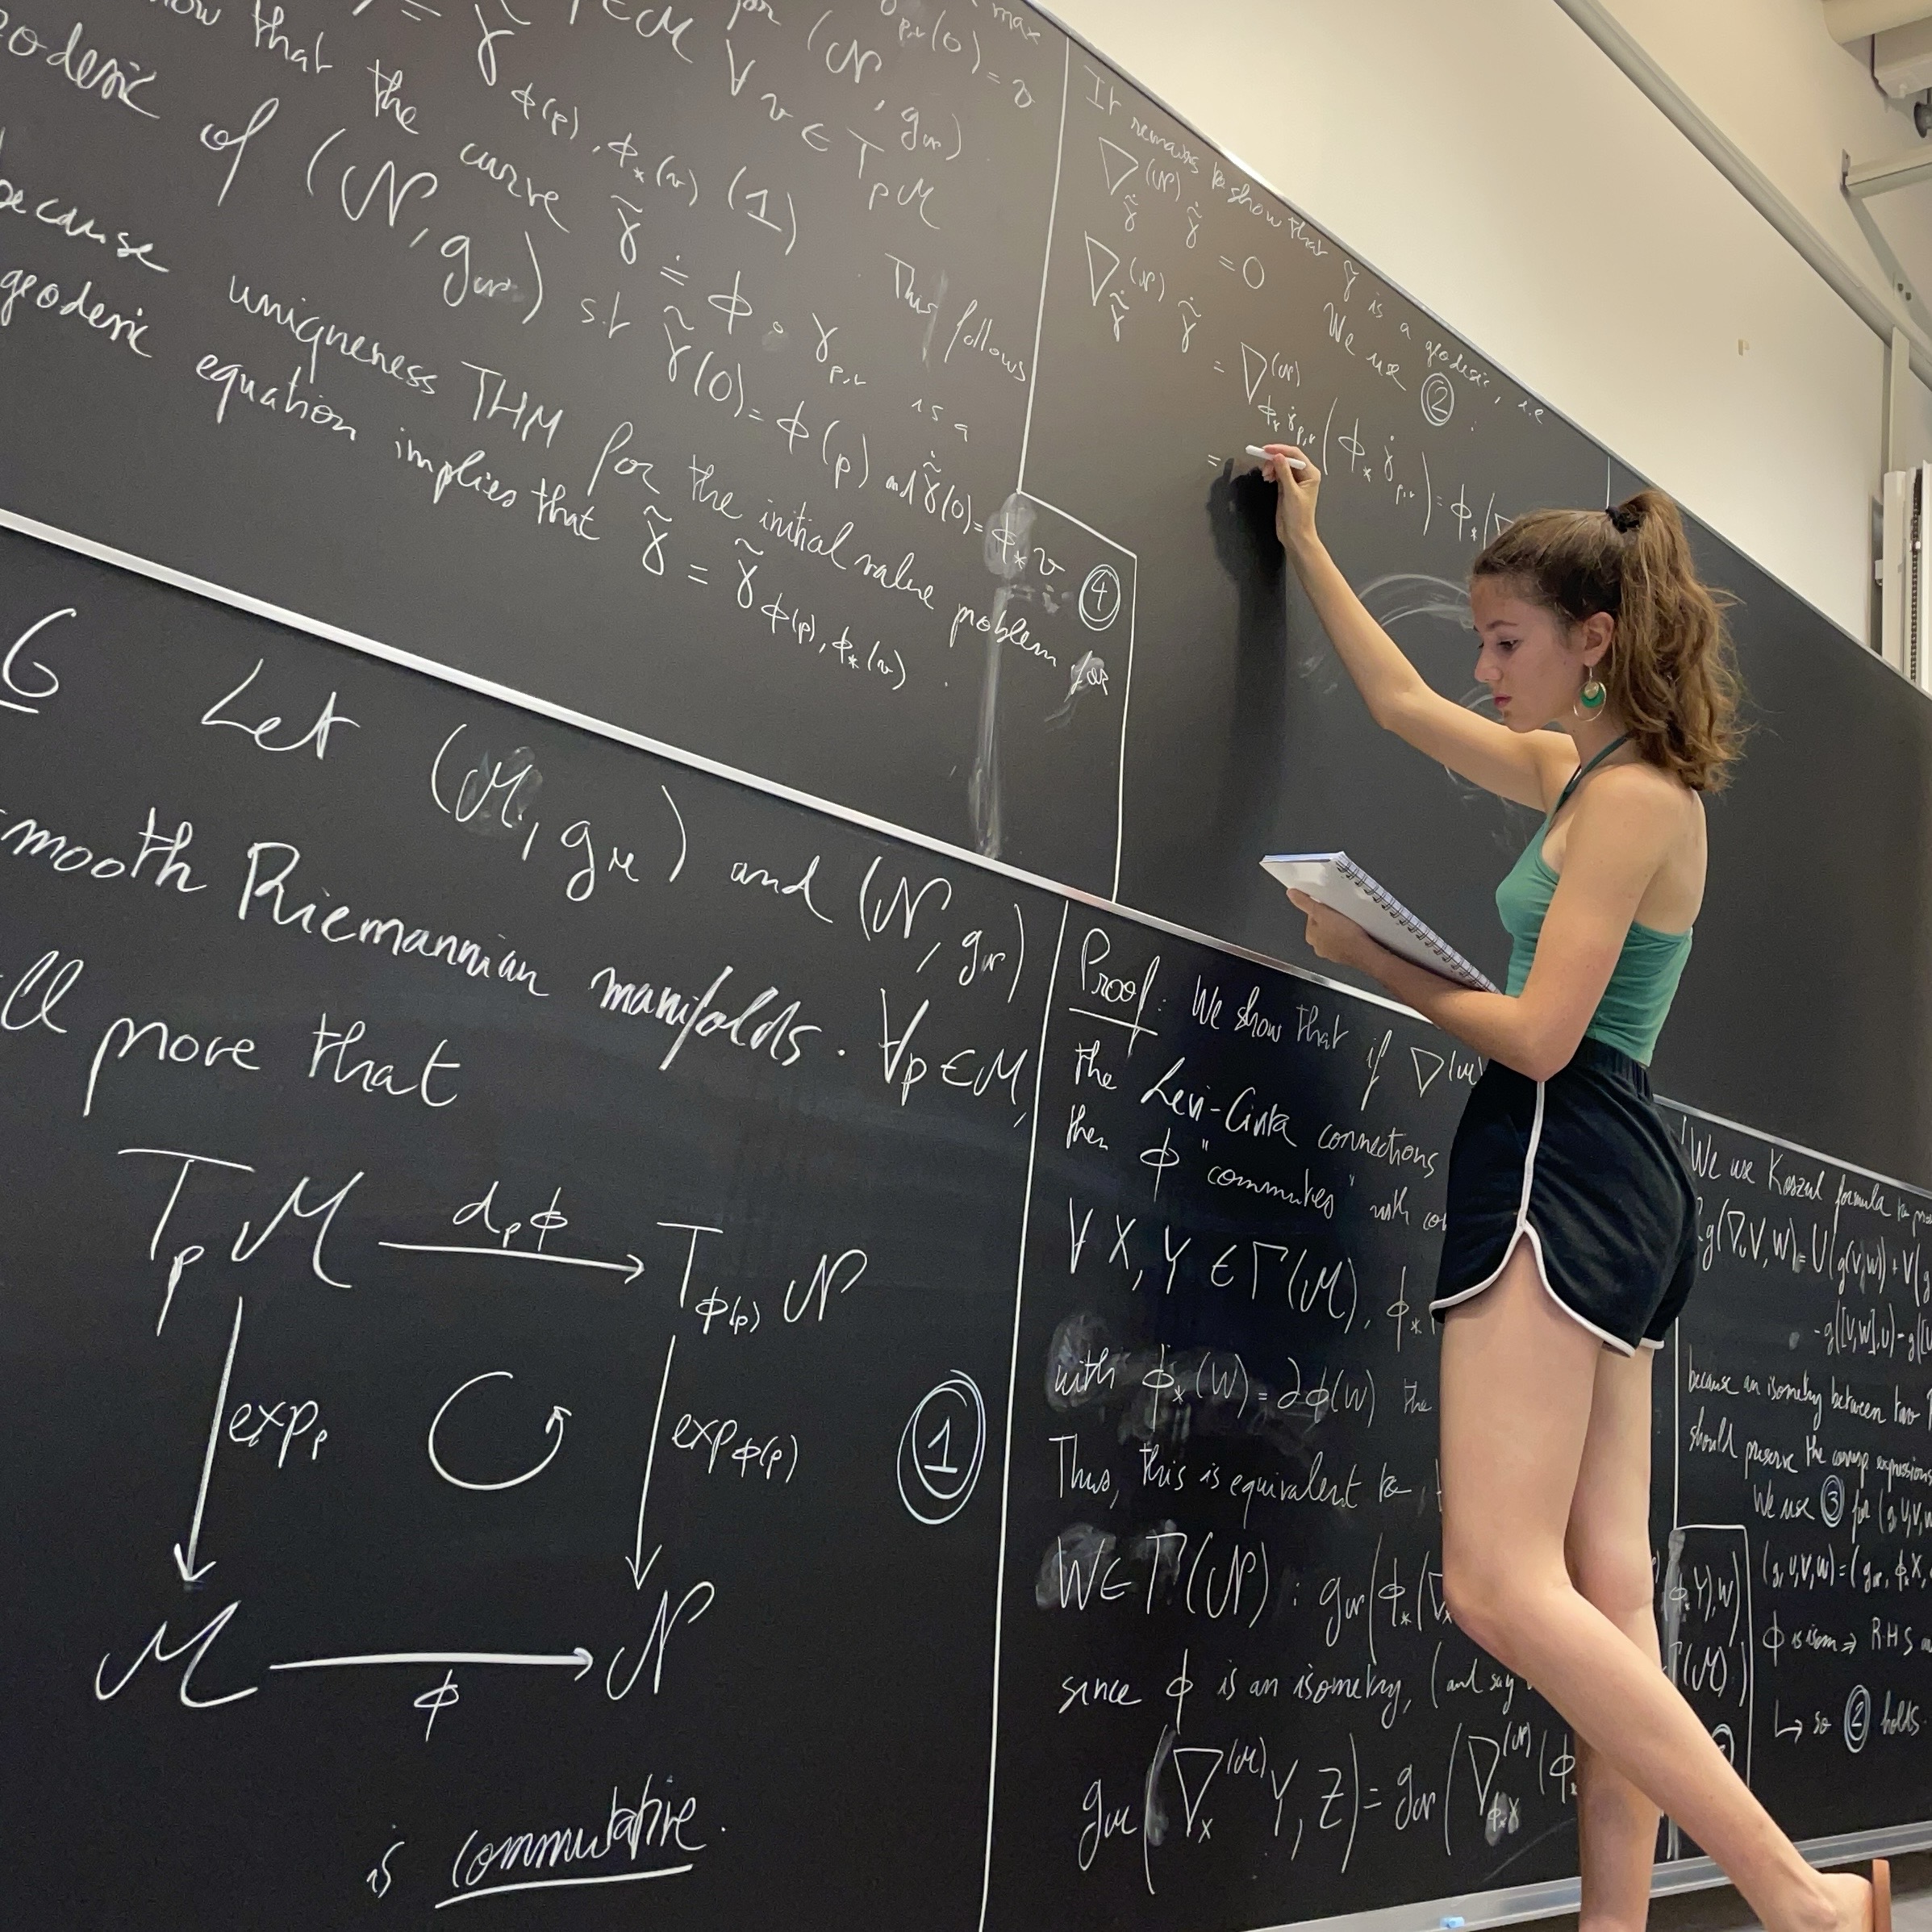 max
γ̇_{p,v}(0) = v
= γ̃_{ϕ(p), ϕ_*(v)} (1)
p ∈ M ∀ v ∈ T_p M
for (N, g_N).
This follows
show that the curve γ̃ ≐ ϕ ∘ γ_{p,v} is a
geodesic of (N, g_N) s.t γ̃(0) = ϕ(p) and γ̃̇(0) = ϕ_* v ④
because uniqueness THM for the initial value problem for
geodesic equation implies that γ̃ = γ̃_{ϕ(p), ϕ_*(v)}.
It remains to show that γ̃ is a geodesic, i.e
∇^{(N)}_{γ̃̇} γ̃̇ = 0 We use ② :
∇^{(N)}_{γ̃̇} γ̃̇ = ∇^{(N)}_{ϕ_* γ̇_{p,v}} (ϕ_* γ̇_{p,v}) = ϕ_*(∇
=
6 Let (M, g_M) and (N, g_N)
smooth Riemannian manifolds. ∀p ∈ M,
more that
T_p M d_pϕ T_{ϕ(p)} N
exp_p exp_{ϕ(p)} ①
M ϕ N
is commutative.
Proof: We show that if ∇^{(M)}
the Levi-Civita connections
then ϕ "commutes" with
∀ X, Y ∈ Γ(M), ϕ_*
with ϕ_*(W) = ∂ϕ(W) the
Thus, this is equivalent to
W ∈ Γ(N) : g_N(ϕ_*(∇_X ϕ_*Y), W)
since ϕ is an isometry, (and say Γ(M))
g_M(∇^{(M)}_X Y, Z) = g_N(∇^{(N)}_{ϕ_*X} (ϕ_*
We use Koszul formula to
2g(∇_U V, W) = U(g(V,W)) + V(g
-g([V,W],U) - g([U
because an isometry between two
should preserve the expressions
We use ③ for (g, U, V, W
(g, U, V, W) = (g_N, ϕ_*X,
ϕ is isom ⇒ RHS
↳ so ② holds.